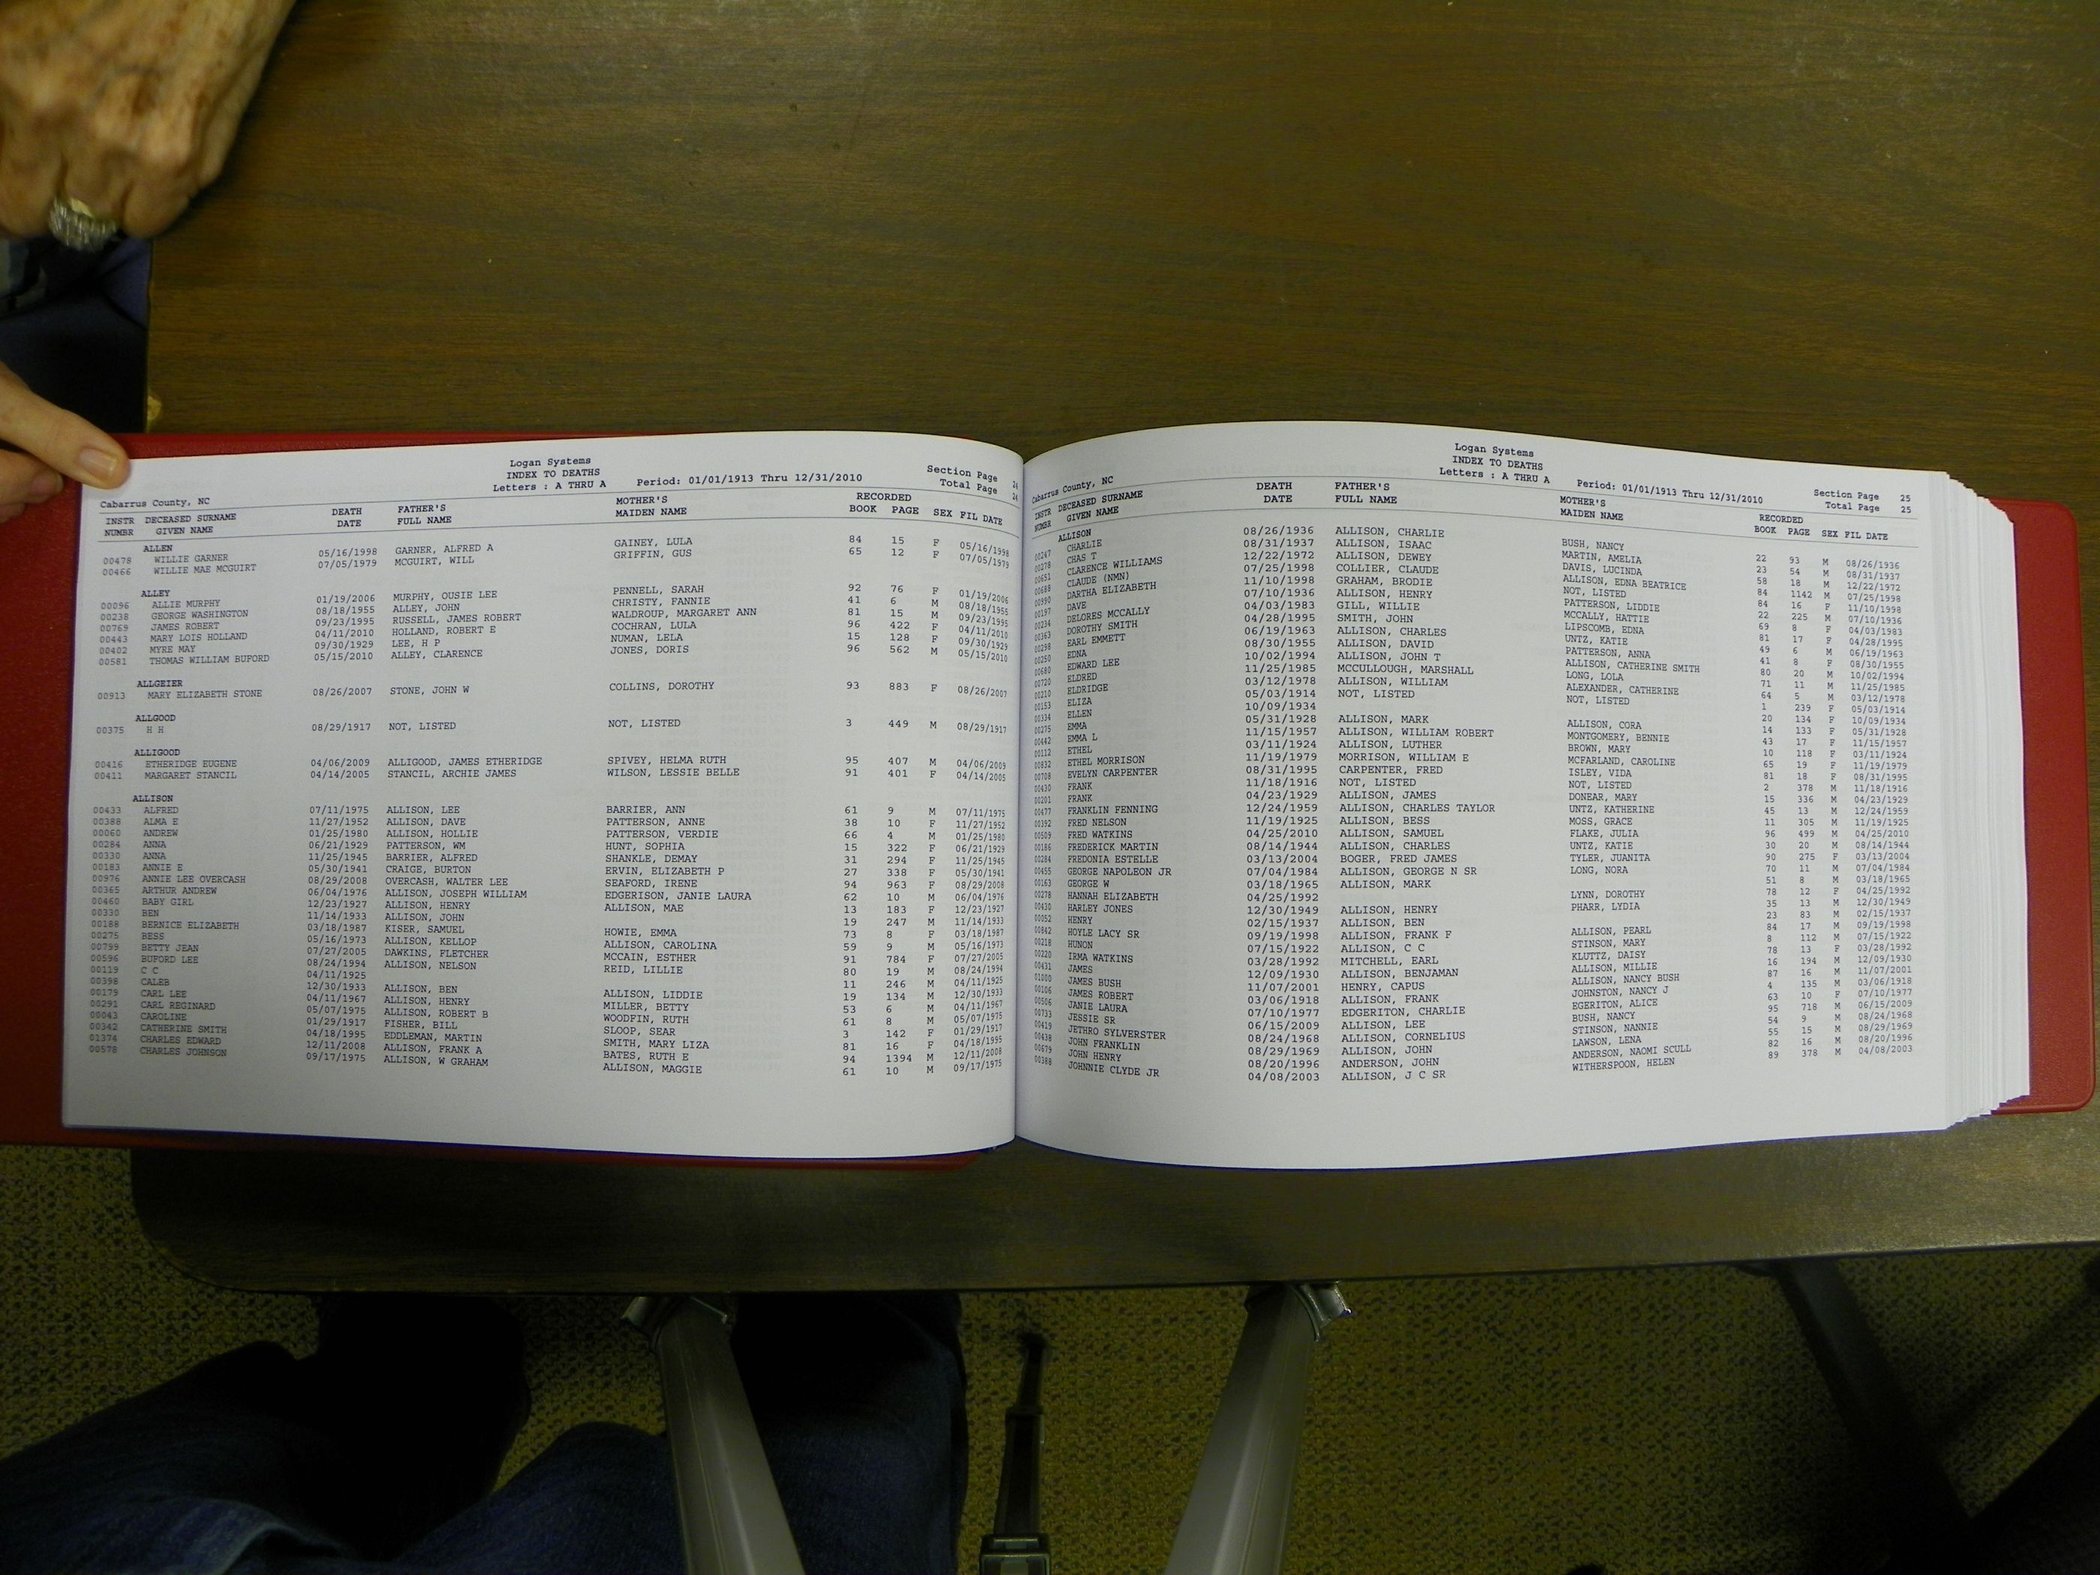 Logan Systems
INDEX TO DEATHS
Letters : A THRU A Period: 01/01/1913 Thru 12/31/2010
Section Page 24
Total Page 24
Cabarrus County, NC
INSTR DECEASED SURNAME DEATH FATHER'S MOTHER'S RECORDED
NUMBR GIVEN NAME DATE FULL NAME MAIDEN NAME BOOK PAGE SEX FIL DATE
ALLEN
00478 WILLIE GARNER 05/16/1998 GARNER, ALFRED A GAINEY, LULA 84 15 F 05/16/1998
00466 WILLIE MAE MCGUIRT 07/05/1979 MCGUIRT, WILL GRIFFIN, GUS 65 12 F 07/05/1979
ALLEY
00096 ALLIE MURPHY 01/19/2006 MURPHY, OUSIE LEE PENNELL, SARAH 92 76 F 01/19/2006
00238 GEORGE WASHINGTON 08/18/1955 ALLEY, JOHN CHRISTY, FANNIE 41 6 M 08/18/1955
00769 JAMES ROBERT 09/23/1995 RUSSELL, JAMES ROBERT WALDROUP, MARGARET ANN 81 15 M 09/23/1995
00443 MARY LOIS HOLLAND 04/11/2010 HOLLAND, ROBERT E COCHRAN, LULA 96 422 F 04/11/2010
00402 MYRE MAY 09/30/1929 LEE, H P NUMAN, LELA 15 128 F 09/30/1929
00581 THOMAS WILLIAM BUFORD 05/15/2010 ALLEY, CLARENCE JONES, DORIS 96 562 M 05/15/2010
ALLGEIER
00913 MARY ELIZABETH STONE 08/26/2007 STONE, JOHN W COLLINS, DOROTHY 93 883 F 08/26/2007
ALLGOOD
00375 H H 08/29/1917 NOT, LISTED NOT, LISTED 3 449 M 08/29/1917
ALLIGOOD
00416 ETHERIDGE EUGENE 04/06/2009 ALLIGOOD, JAMES ETHERIDGE SPIVEY, HELMA RUTH 95 407 M 04/06/2009
00411 MARGARET STANCIL 04/14/2005 STANCIL, ARCHIE JAMES WILSON, LESSIE BELLE 91 401 F 04/14/2005
ALLISON
00433 ALFRED 07/11/1975 ALLISON, LEE BARRIER, ANN 61 9 M 07/11/1975
00388 ALMA E 11/27/1952 ALLISON, DAVE PATTERSON, ANNE 38 10 F 11/27/1952
00060 ANDREW 01/25/1980 ALLISON, HOLLIE PATTERSON, VERDIE 66 4 M 01/25/1980
00284 ANNA 06/21/1929 PATTERSON, WM HUNT, SOPHIA 15 322 F 06/21/1929
00330 ANNA 11/25/1945 BARRIER, ALFRED SHANKLE, DEMAY 31 294 F 11/25/1945
00183 ANNIE E 05/30/1941 CRAIGE, BURTON ERVIN, ELIZABETH P 27 338 F 05/30/1941
00976 ANNIE LEE OVERCASH 08/29/2008 OVERCASH, WALTER LEE SEAFORD, IRENE 94 963 F 08/29/2008
00365 ARTHUR ANDREW 06/04/1976 ALLISON, JOSEPH WILLIAM EDGERISON, JANIE LAURA 62 10 M 06/04/1976
00460 BABY GIRL 12/23/1927 ALLISON, HENRY ALLISON, MAE 13 183 F 12/23/1927
00330 BEN 11/14/1933 ALLISON, JOHN 19 247 M 11/14/1933
00188 BERNICE ELIZABETH 03/18/1987 KISER, SAMUEL HOWIE, EMMA 73 8 F 03/18/1987
00275 BESS 05/16/1973 ALLISON, KELLOP ALLISON, CAROLINA 59 9 M 05/16/1973
00799 BETTY JEAN 07/27/2005 DAWKINS, FLETCHER MCCAIN, ESTHER 91 784 F 07/27/2005
00596 BUFORD LEE 08/24/1994 ALLISON, NELSON REID, LILLIE 80 19 M 08/24/1994
00119 C C 04/11/1925 11 246 M 04/11/1925
00398 CALEB 12/30/1933 ALLISON, BEN ALLISON, LIDDIE 19 134 M 12/30/1933
00179 CARL LEE 04/11/1967 ALLISON, HENRY MILLER, BETTY 53 6 M 04/11/1967
00291 CARL REGINARD 05/07/1975 ALLISON, ROBERT B WOODFIN, RUTH 61 8 M 05/07/1975
00043 CAROLINE 01/29/1917 FISHER, BILL SLOOP, SEAR 3 142 F 01/29/1917
00342 CATHERINE SMITH 04/18/1995 EDDLEMAN, MARTIN SMITH, MARY LIZA 81 16 F 04/18/1995
01374 CHARLES EDWARD 12/11/2008 ALLISON, FRANK A BATES, RUTH E 94 1394 M 12/11/2008
00578 CHARLES JOHNSON 09/17/1975 ALLISON, W GRAHAM ALLISON, MAGGIE 61 10 M 09/17/1975
Logan Systems
INDEX TO DEATHS
Letters : A THRU A Period: 01/01/1913 Thru 12/31/2010
Section Page 25
Total Page 25
Cabarrus County, NC
INSTR DECEASED SURNAME DEATH FATHER'S MOTHER'S RECORDED
NUMBR GIVEN NAME DATE FULL NAME MAIDEN NAME BOOK PAGE SEX FIL DATE
ALLISON
00247 CHARLIE 08/26/1936 ALLISON, CHARLIE BUSH, NANCY 22 93 M 08/26/1936
00278 CHAS T 08/31/1937 ALLISON, ISAAC MARTIN, AMELIA 23 54 M 08/31/1937
00651 CLARENCE WILLIAMS 12/22/1972 ALLISON, DEWEY DAVIS, LUCINDA 58 18 M 12/22/1972
00688 CLAUDE (NMN) 07/25/1998 COLLIER, CLAUDE ALLISON, EDNA BEATRICE 84 1142 M 07/25/1998
00990 DARTHA ELIZABETH 11/10/1998 GRAHAM, BRODIE NOT, LISTED 84 16 F 11/10/1998
00197 DAVE 07/10/1936 ALLISON, HENRY PATTERSON, LIDDIE 22 225 M 07/10/1936
00234 DELORES MCCALLY 04/03/1983 GILL, WILLIE MCCALLY, HATTIE 69 8 F 04/03/1983
00363 DOROTHY SMITH 04/28/1995 SMITH, JOHN LIPSCOMB, EDNA 81 17 F 04/28/1995
00298 EARL EMMETT 06/19/1963 ALLISON, CHARLES UNTZ, KATIE 49 6 M 06/19/1963
00250 EDNA 08/30/1955 ALLISON, DAVID PATTERSON, ANNA 41 8 F 08/30/1955
00680 EDWARD LEE 10/02/1994 ALLISON, JOHN T ALLISON, CATHERINE SMITH 80 20 M 10/02/1994
00720 ELDRED 11/25/1985 MCCULLOUGH, MARSHALL LONG, LOLA 71 11 M 11/25/1985
00210 ELDRIDGE 03/12/1978 ALLISON, WILLIAM ALEXANDER, CATHERINE 64 5 M 03/12/1978
00153 ELIZA 05/03/1914 NOT, LISTED NOT, LISTED 1 239 F 05/03/1914
00334 ELLEN 10/09/1934 20 134 F 10/09/1934
00275 EMMA 05/31/1928 ALLISON, MARK ALLISON, CORA 14 133 F 05/31/1928
00442 EMMA L 11/15/1957 ALLISON, WILLIAM ROBERT MONTGOMERY, BENNIE 43 17 F 11/15/1957
00112 ETHEL 03/11/1924 ALLISON, LUTHER BROWN, MARY 10 118 F 03/11/1924
00832 ETHEL MORRISON 11/19/1979 MORRISON, WILLIAM E MCFARLAND, CAROLINE 65 19 F 11/19/1979
00708 EVELYN CARPENTER 08/31/1995 CARPENTER, FRED ISLEY, VIDA 81 18 F 08/31/1995
00430 FRANK 11/18/1916 NOT, LISTED NOT, LISTED 2 378 M 11/18/1916
00201 FRANK 04/23/1929 ALLISON, JAMES DONEAR, MARY 15 336 M 04/23/1929
00477 FRANKLIN FENNING 12/24/1959 ALLISON, CHARLES TAYLOR UNTZ, KATHERINE 45 13 M 12/24/1959
00392 FRED NELSON 11/19/1925 ALLISON, BESS MOSS, GRACE 11 305 M 11/19/1925
00509 FRED WATKINS 04/25/2010 ALLISON, SAMUEL FLAKE, JULIA 96 499 M 04/25/2010
00186 FREDERICK MARTIN 08/14/1944 ALLISON, CHARLES UNTZ, KATIE 30 20 M 08/14/1944
00284 FREDONIA ESTELLE 03/13/2004 BOGER, FRED JAMES TYLER, JUANITA 90 275 F 03/13/2004
00455 GEORGE NAPOLEON JR 07/04/1984 ALLISON, GEORGE N SR LONG, NORA 70 11 M 07/04/1984
00163 GEORGE W 03/18/1965 ALLISON, MARK 51 8 M 03/18/1965
00278 HANNAH ELIZABETH 04/25/1992 LYNN, DOROTHY 78 12 F 04/25/1992
00430 HARLEY JONES 12/30/1949 ALLISON, HENRY PHARR, LYDIA 35 13 M 12/30/1949
00052 HENRY 02/15/1937 ALLISON, BEN 23 83 M 02/15/1937
00842 HOYLE LACY SR 09/19/1998 ALLISON, FRANK F ALLISON, PEARL 84 17 M 09/19/1998
00218 HUNON 07/15/1922 ALLISON, C C STINSON, MARY 8 112 M 07/15/1922
00220 IRMA WATKINS 03/28/1992 MITCHELL, EARL KLUTTZ, DAISY 78 13 F 03/28/1992
00431 JAMES 12/09/1930 ALLISON, BENJAMAN ALLISON, MILLIE 16 194 M 12/09/1930
01000 JAMES BUSH 11/07/2001 HENRY, CAPUS ALLISON, NANCY BUSH 87 16 M 11/07/2001
00106 JAMES ROBERT 03/06/1918 ALLISON, FRANK JOHNSTON, NANCY J 4 135 M 03/06/1918
00506 JANIE LAURA 07/10/1977 EDGERITON, CHARLIE EGERITON, ALICE 63 10 F 07/10/1977
00733 JESSIE SR 06/15/2009 ALLISON, LEE BUSH, NANCY 95 718 M 06/15/2009
00419 JETHRO SYLVERSTER 08/24/1968 ALLISON, CORNELIUS STINSON, NANNIE 54 9 M 08/24/1968
00438 JOHN FRANKLIN 08/29/1969 ALLISON, JOHN LAWSON, LENA 55 15 M 08/29/1969
00679 JOHN HENRY 08/20/1996 ANDERSON, JOHN ANDERSON, NAOMI SCULL 82 16 M 08/20/1996
00388 JOHNNIE CLYDE JR 04/08/2003 ALLISON, J C SR WITHERSPOON, HELEN 89 378 M 04/08/2003